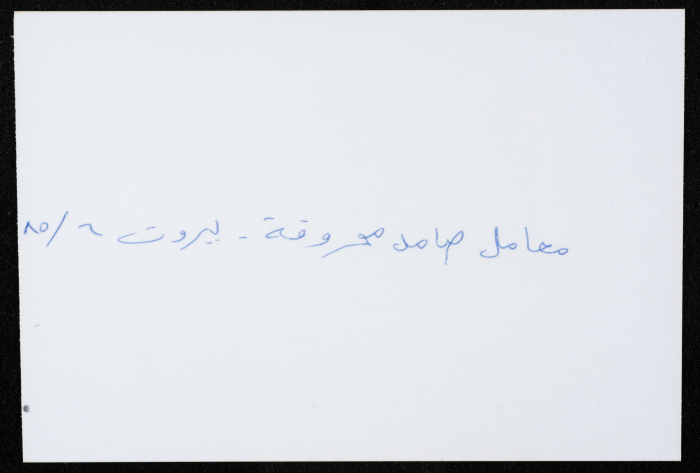 معامل صامد محروقة - بيروت ٦/٨٥